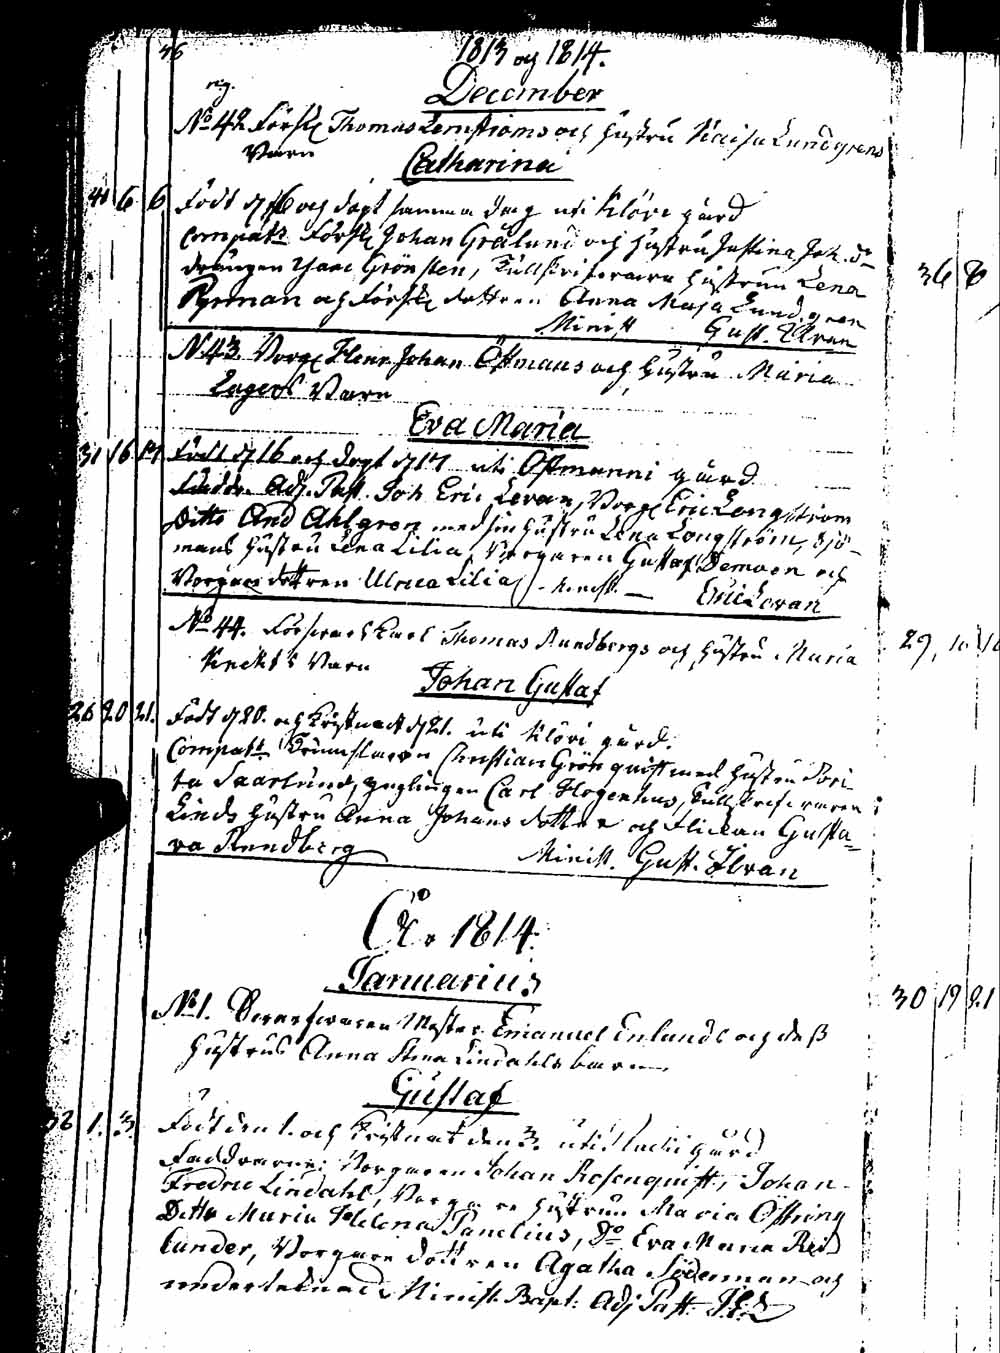 36
1813 og 1814.
December
No 42 Försk Thomas Lemströms och Hustru Kaisa Lundgrens
Barn
Catharina
41 6 6 Födt d 6 och döpt samma dag uti Klövi gård
Compatr Försk Johan Grålund och Hustru Justina Joh. dr
drängen Isaac Grönsten, Tullskrifvaren Hustrun Lena
Pyrman och Försk dottren Anna Maja Lundgren
Minist Gust. Ilvan
36 8
N 43. Borg Henr Johan Östmans och Hustru Maria
Lagers Barn
Eva Maria
31 16 17 Födt d 16 och döpt d 17 uti Östmanni gård
Faddr. Adj. Past. Joh Eric Levan, Borg Eric Longström
Ditto And Ahlgren med sin Hustru Lena Longström, Sjö-
mans Hustru Lena Lilia, Borgaren Gustaf Demoen och
Borgare dottren Ulrica Lilia - Minist. Eric Levan
No 44. Försvars Karl Thomas Rundbergs och Hustru Maria
29, 10 10
Knekts Barn
Johan Gustaf
26 20 21. Födt d 20. och Kristnadt d 21. uti Klövi gård.
Compatr. Christian Grönquist med Hustru Dori-
ta Saarlund, ynglingen Carl Hogenhus, Tullskrifvaren
Linds Hustru Anna Johans dotter och Flickan Gusta-
va Rundberg
Minist. Gust. Ilvan
År 1814.
Januarius
30 19 21
No 1. Mäster Emanuel Enlunds och deß
Hustrus Anna Stina Lindahls barn
Gustaf
36 1. 3. Födt den 1. och Kristnat den 3. uti gård
Faddrarne: Borgaren Johan Rosenquist, Johan
Fredric Lindahl, Borgare Hustrun Maria Östring
Ditto Maria Helena Panelius, Do Eva Maria Reid
lunder, Borgare dottren Agatha Söderman och
undertecknad Minist. Bapt: Adj Past.